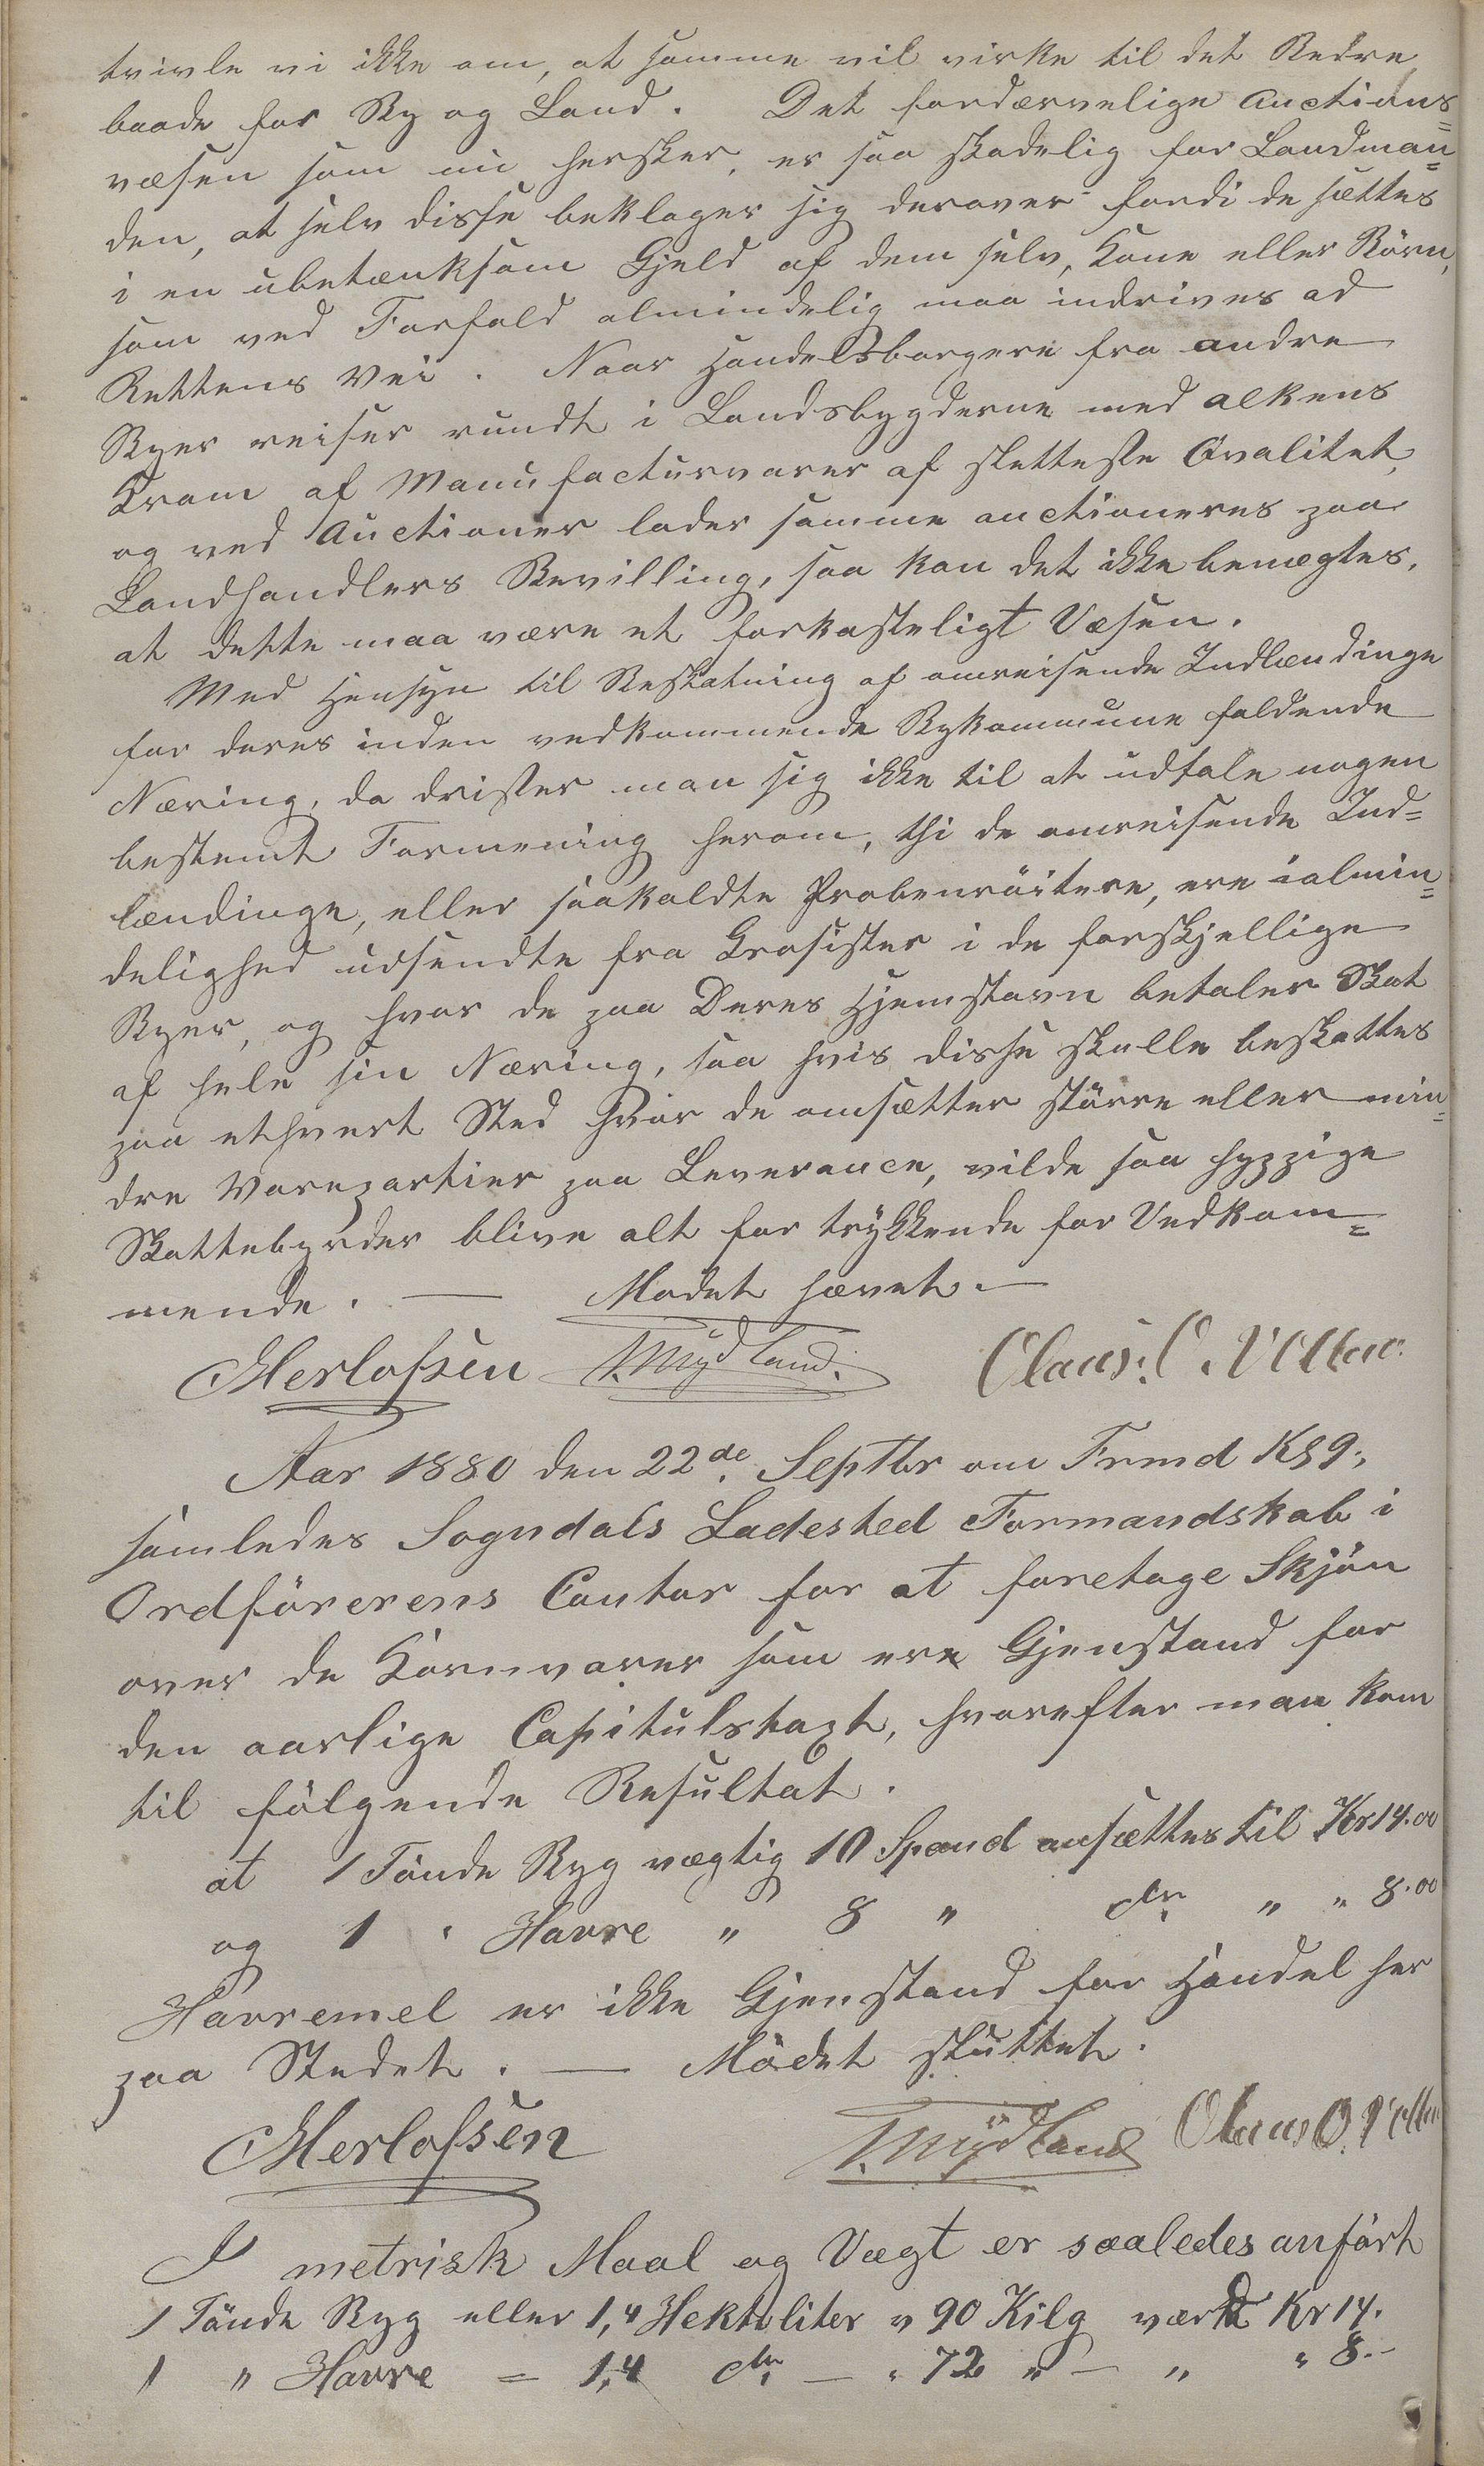 tvivle vi ikke om, at samme vil virke til det Bedre
baade for By og Land. Det fordærvelige Auctions=
væsen som nu hersker, er saa skadelig for Landman=
den, at selv disse beklager sig derover fordi de sættes
i en ubetænksom Gjeld af dem selv, Kone eller Börn,
som ved Forfald almindelig maa indrives ad
Rettens Vei. Naar Handelsborgere fra andre
Byer reiser rundt i Landsbygderne med alkens
Kram af Manufacturvarer af sletteste Qvalitet,
og ved Auctioner lader samme auctioneres paa
Landhandlers Bevilling, saa kan det ikke benægtes,
at dette maa være et forkasteligt Væsen.
Med Hensyn til Beskatning af omreisende Indlændinge
for deres inden vedkommende Bykommune faldende
Næring, da drister man sig ikke til at udtale nogen
bestemt Formening herom, thi de omreisende Ind=
lændinge, eller saakaldte Probenröitere, ere i almin=
delighed udsendte fra Grosister i de forskjellige
Byer, og hvor de paa Deres Hjemstavn betaler Skat
af hele sin Næring, saa hvis disse skulle beskattes
paa ethvert Sted hvor de omsætter större eller min=
dre Varepartier paa Leverance, vilde saa hyppige
Skattebyrder blive alt for trykkende for Vedkom=
mende. — Mödet hævet. —
Herlofsen T. Mydland. Claus. O.
Aar 1880 den 22de Septbr om Frmd Kl 9,
samledes Sogndals Ladested Formandskab i
Ordförerens Contor for at foretage Skjön
over de Kornvarer som ere Gjenstand for
den aarlige Capitulstaxt, hvorefter man kom
til fölgende Resultat.
at 1 Tönde Byg vægtig 10 Spand ansættes til Kr 14.00
og 1 " Havre " 8 " do " " 8.00
Havremel er ikke Gjenstand for Handel her
paa Stedet. — Mödet sluttet.
Herlofsen T. Mydland Claus O.
I metrisk Maal og Vægt er saaledes anfört
1 Tönde Byg eller 1,4 Hektoliter v 90 Kilg værd Kr 14.
1 " Havre = 1,4 do — " 72 " — " " 8.-